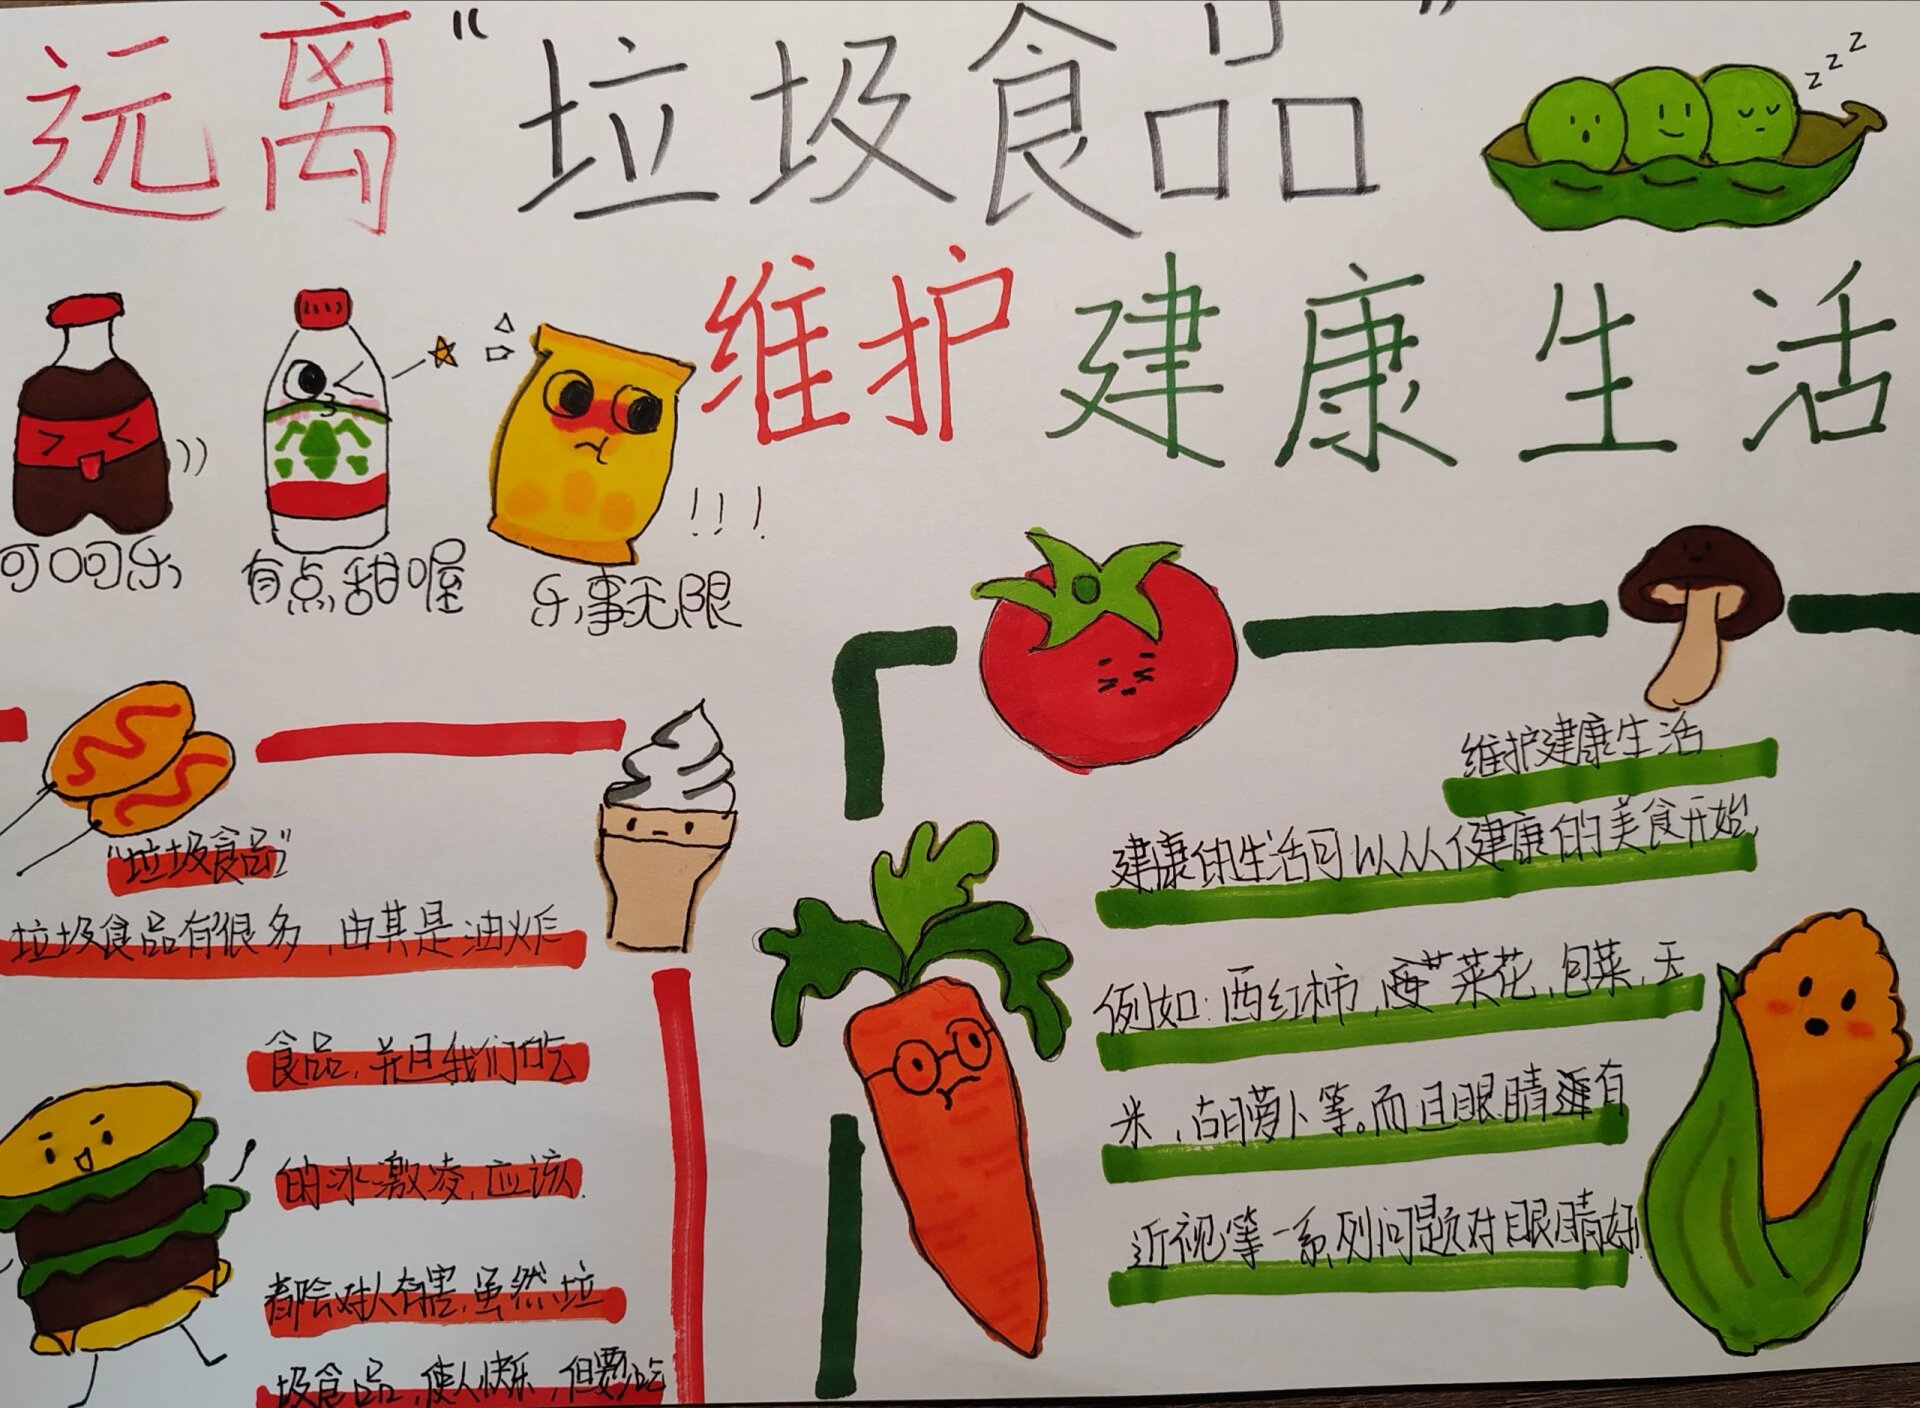 远离“垃圾食品”
维护建康生活
zzz
可口可乐
有点甜喔
乐事无限
!!!
“垃圾食品”
垃圾食品有很多，由其是油炸
食品，并且我们吃
的冰激凌，应该
都会对人有害，虽然垃
圾食品，使人快乐，但要少吃
维护建康生活
建康的生活可以从从健康的美食开始，
例如：西红柿，菜花，包菜，玉
米，胡萝卜等。而且眼睛还有
近视等一系列问题对眼睛好